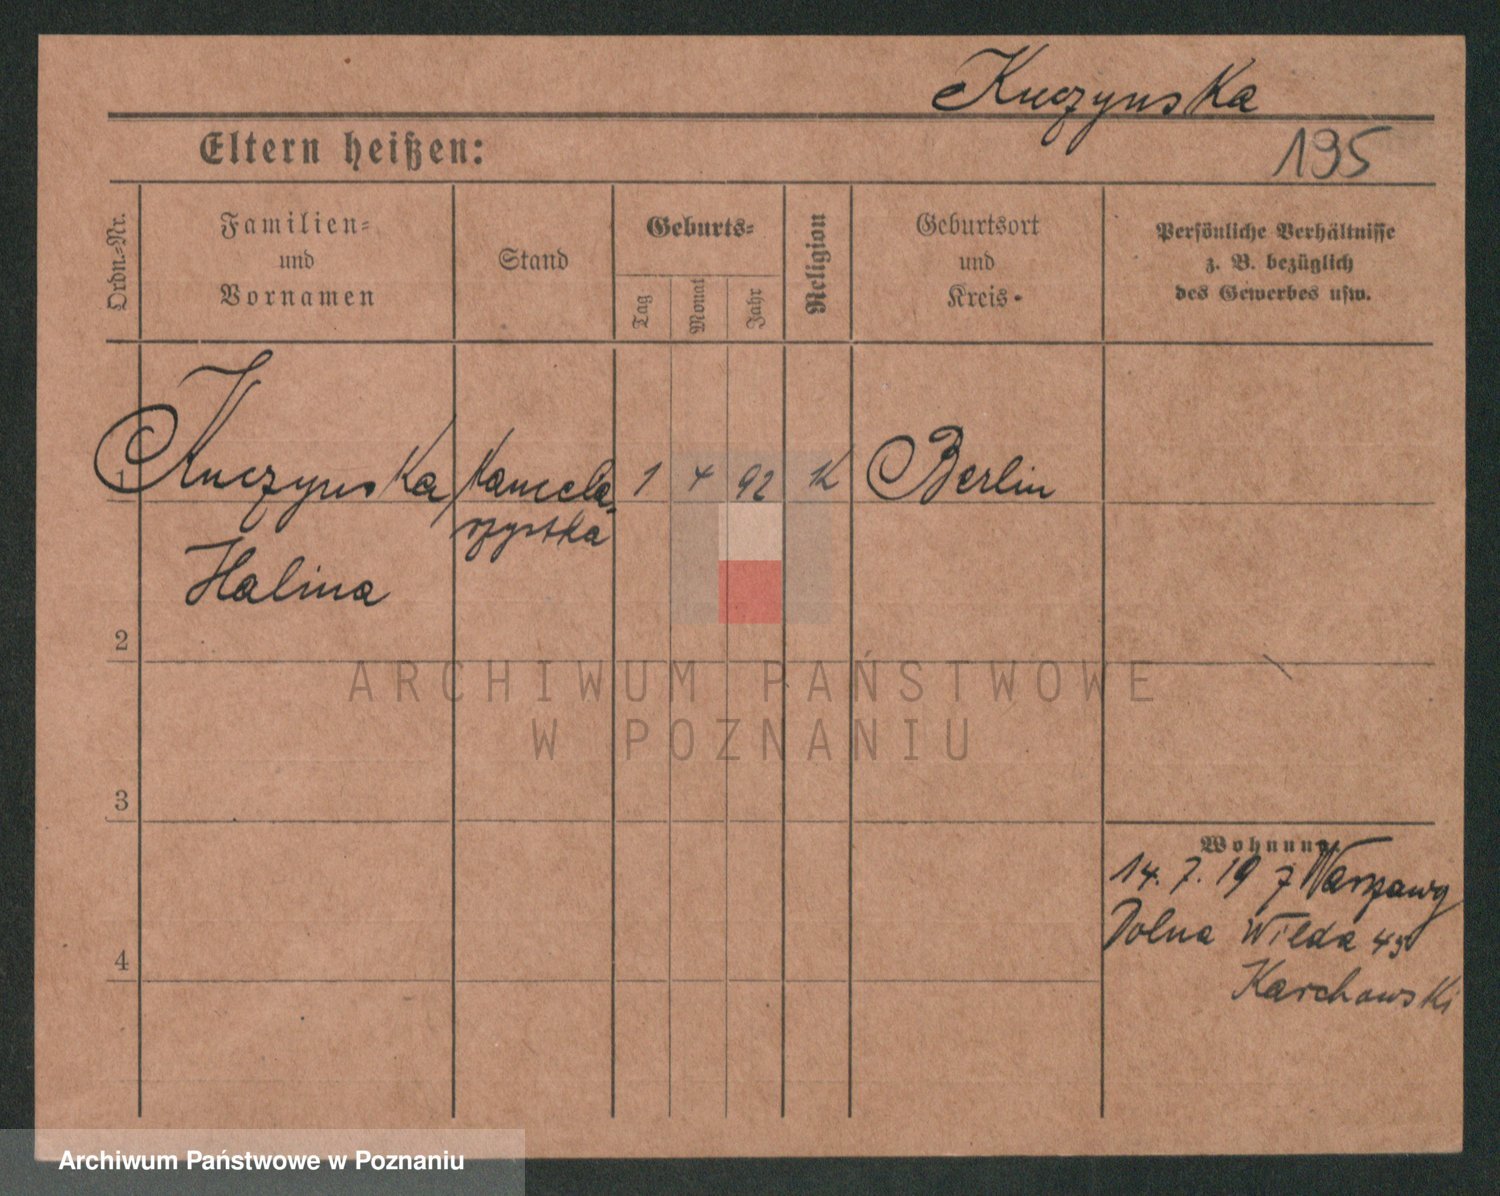 Kuczynska
Eltern heißen:
195
Ordn.-Nr.
Familien=
und
Vornamen
Stand
Geburts=
Tag
Monat
Jahr
Religion
Geburtsort
und
Kreis
Persönliche Verhältnisse
z. B. bezüglich
des Gewerbes usw.
1
Kuczynska
Kancela-
rzystka
1 4 92 K
Berlin
Halina
2
ARCHIWUM PAŃSTWOWE
W POZNANIU
3
Wohnung.
14. 7. 19 z Warszawy
Dolna Wilda
4
Karchowski
Archiwum Państwowe w Poznaniu